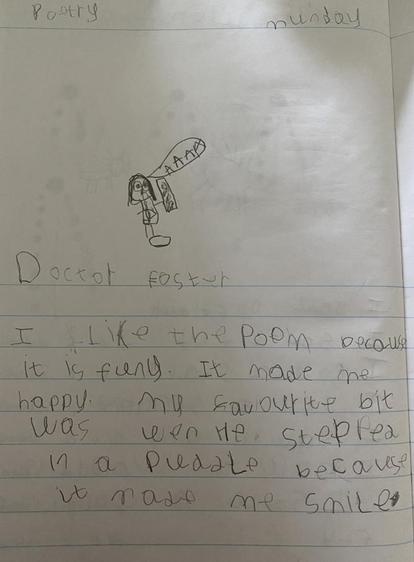 Poetry munday
AAAA
Doctor foster
I Like the Poem because
it is funy. It made me
happy. my favourite bit
was wen He stepped
in a Puddle because
it made me smile.